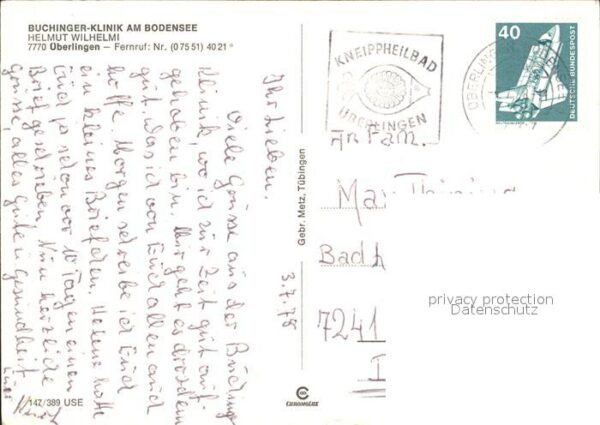 BUCHINGER-KLINIK AM BODENSEE
HELMUT WILHELMI
7770 Überlingen - Fernruf: Nr. (0 75 51) 40 21
KNEIPPHEILBAD
ÜBERLINGEN
40
DEUTSCHE BUNDESPOST
Ihr Lieben.
Viele Grüsse aus der Buching.
Klinik, wo ich zur Zeit gut auf-
gehoben bin. Mir geht es trotzdem
gut, was ich von Euch allen auch
hoffe. Morgen schreibe ich Euch
ein kleines Briefchen. Helene hatte
Euch ja schon vor 10 Tagen einen
Brief geschrieben. Nun herzliche
Grüsse, alles Gute u. Gesundheit
Gebr. Metz, Tübingen
3.7.78
An Fam.
Max
Bad
7241
privacy protection
Datenschutz
147/389 USE
CHROMGERE